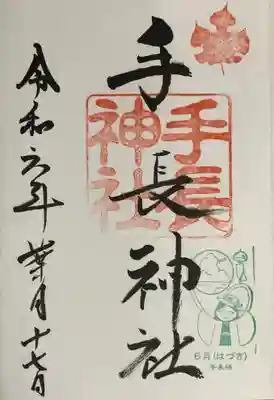 手長神社
手長
神社
8月(はづき)
令和六年葉月十七日